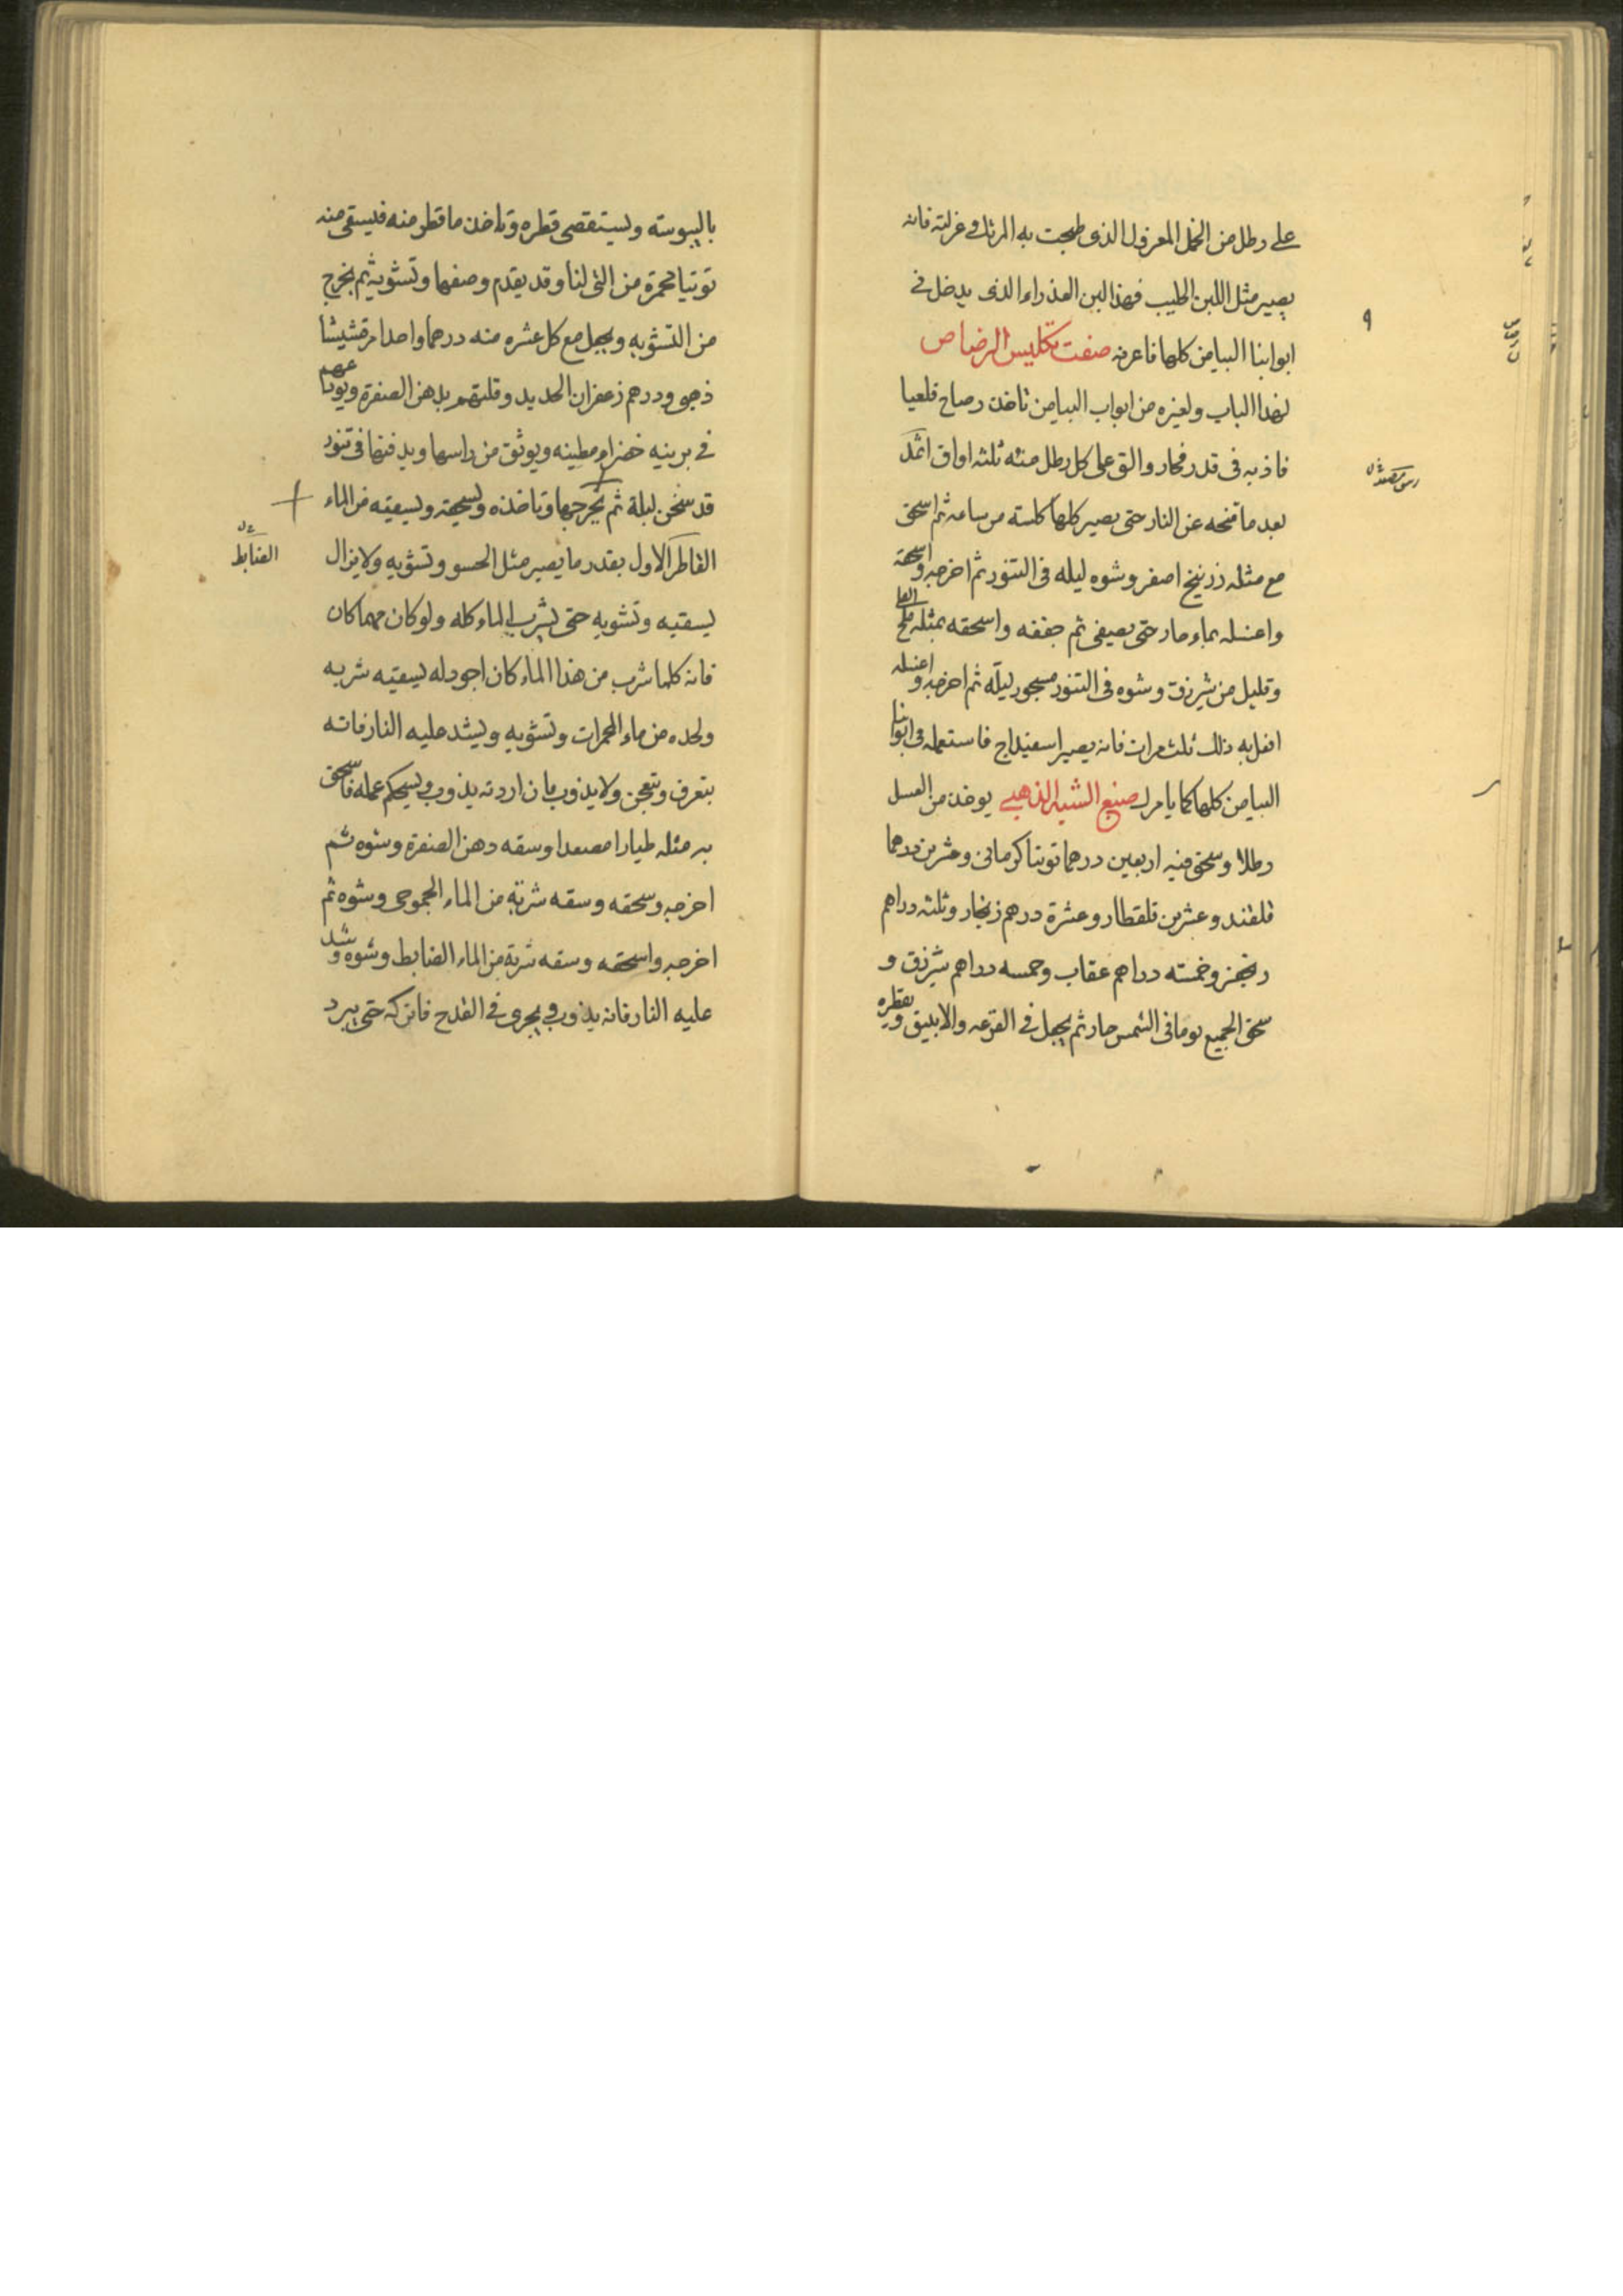 على رطل من الخل المعزول الذى طبخت به المرتك وعزلته فانه
يصير مثل اللبن الحليب فهذا لبن العذراء الذى يدخل فى
ابوابنا البياض كلها فاعرفه صفت تكليس الرصاص
لهذا الباب ولغيره من ابواب البياض تاخذ رصاص قلعيا
فاذبه فى قدر فخار والق على كل رطل منه ثلثه اواق اثمد
بعد ما تنحه عن النار حتى يصير كلها كلسته من ساعه ثم اسحق
مع مثله زرنيخ اصفر وشوه ليله فى التنور ثم اخرجه واسحقه
واغسله بماء حار حتى يصفى ثم جففه واسحقه بمثله ملح القلى
وقليل من شيرزق وشوه فى التنور مسجور ليلة ثم اخرجه واغسله
افعل به ذلك ثلث مرات فانه يصير اسفيداج فاستعمله فى ابوابنا
البياض كلها كما يامرك صنيع الشبه الذهبى يوخذ من العسل
رطلا وسحق فيه اربعين درهما توتيا كرمانى وعشرين درهما
قلقند وعشرين قلقطار وعشرة درهم زنجار وثلثه دراهم
زنجفر وخمسته دراهم عقاب وخمسه دراهم شيرزق و
سحق الجميع يوما فى الشمس حار ثم يجعل فى القرعه والانبيق ويقطره
باليبوسته وليستقصى قطره وتاخذ ما قطر منه فيسقى منه
توتيا محمرة من التى لنا وقد يقدم وصفها وتشويه ثم يخرج
من التشويه ويجعل مع كل عشره منه درهما واحدا مرقشيشا
ذهبى ودرهم زعفران الحديد وقلتهم بدهن الصفرة ويودعهم
فى برينيه خضراء مطينه ويوثق من راسها ويدفنها فى تنور
قد سخن ليلة ثم يخرجها وتاخذه ويسحقه ويسقيه من الماء
القاطر الاول بقدر ما يصير مثل الحسو وتشويه ولا يزال
الضابط
يسقيه وتشويه حتى يشرب الماء كله ولو كان مهما كان
فانه كلما شرب من هذا الماء كان اجود له يسقيه شربه
واحده من ماء المحمرات وتشويه ويشد عليه النار فانه
يتعرق ويتعجن ولا يذوب فان اردته يذوب ويسحكم عمله فاسحق
به مثله طيارا مصعدا وسقه دهن الصفرة وشوه ثم
اخرجه وسحقه وسقه شربة من الماء الجموحى وشوه ثم
اخرجه واسحقه وسقه شربة من الماء الضابط وشوه وشد
عليه النار فانه يذوب ويجرى فى القدح فاتركه حتى يبرد